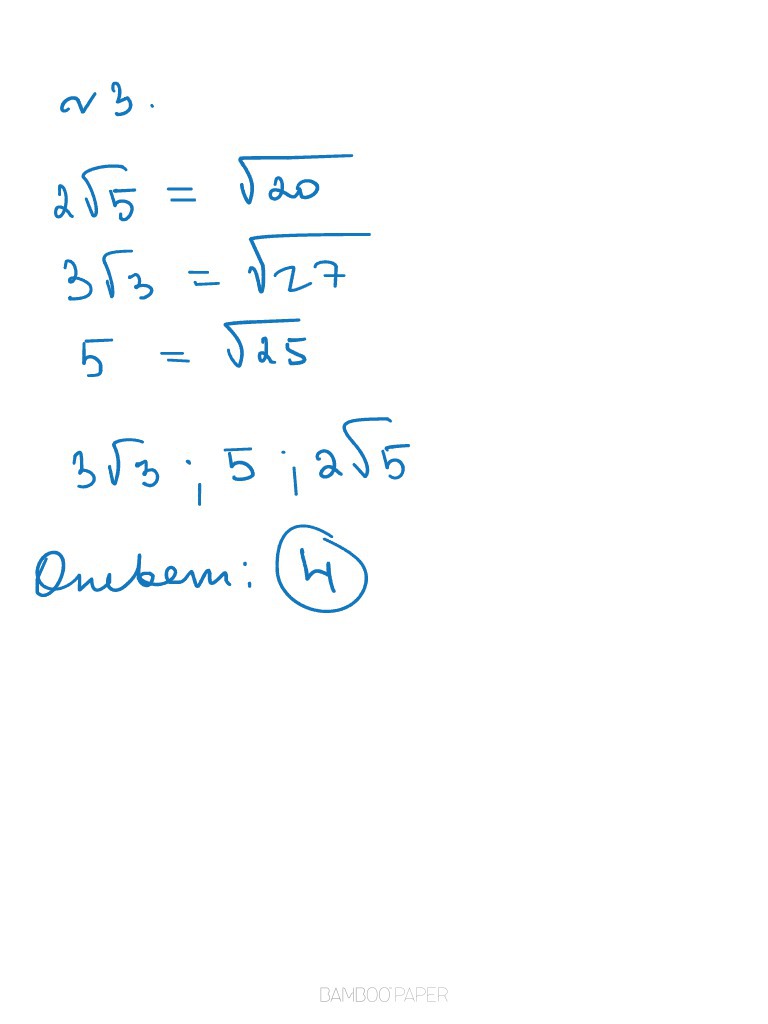 ~ 3.
2√5 = √20
3√3 = √27
5 = √25
3√3 ; 5 ; 2√5
Ответ: 4
BAMBOO PAPER